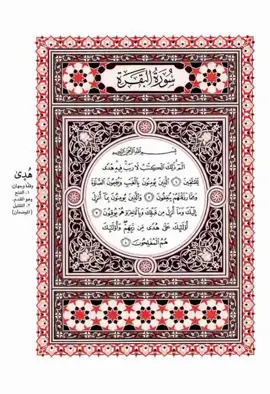 سُورَةُ البَقَرَةِ
بسم الله الرحمن الرحيم
الٓمٓ ذَٰلِكَ ٱلْكِتَٰبُ لَا رَيْبَ فِيهِ هُدًى
لِّلْمُتَّقِينَ ١ ٱلَّذِينَ يُومِنُونَ بِٱلْغَيْبِ وَيُقِيمُونَ ٱلصَّلَوٰةَ
وَمِمَّا رَزَقْنَٰهُمْ يُنفِقُونَ ٢ وَٱلَّذِينَ يُومِنُونَ بِمَا أُنزِلَ
إِلَيْكَ وَمَا أُنزِلَ مِن قَبْلِكَ وَبِالَاخِرَةِ هُمْ يُوقِنُونَ ٣
أُوْلَٰئِكَ عَلَىٰ هُدًى مِّن رَّبِّهِمْ وَأُوْلَٰئِكَ
هُمُ ٱلْمُفْلِحُونَ ٤
هُدىً
وقفاً وجهان:
١. الفتح
وهو المقدم.
٢. التقليل
(الموضعان)